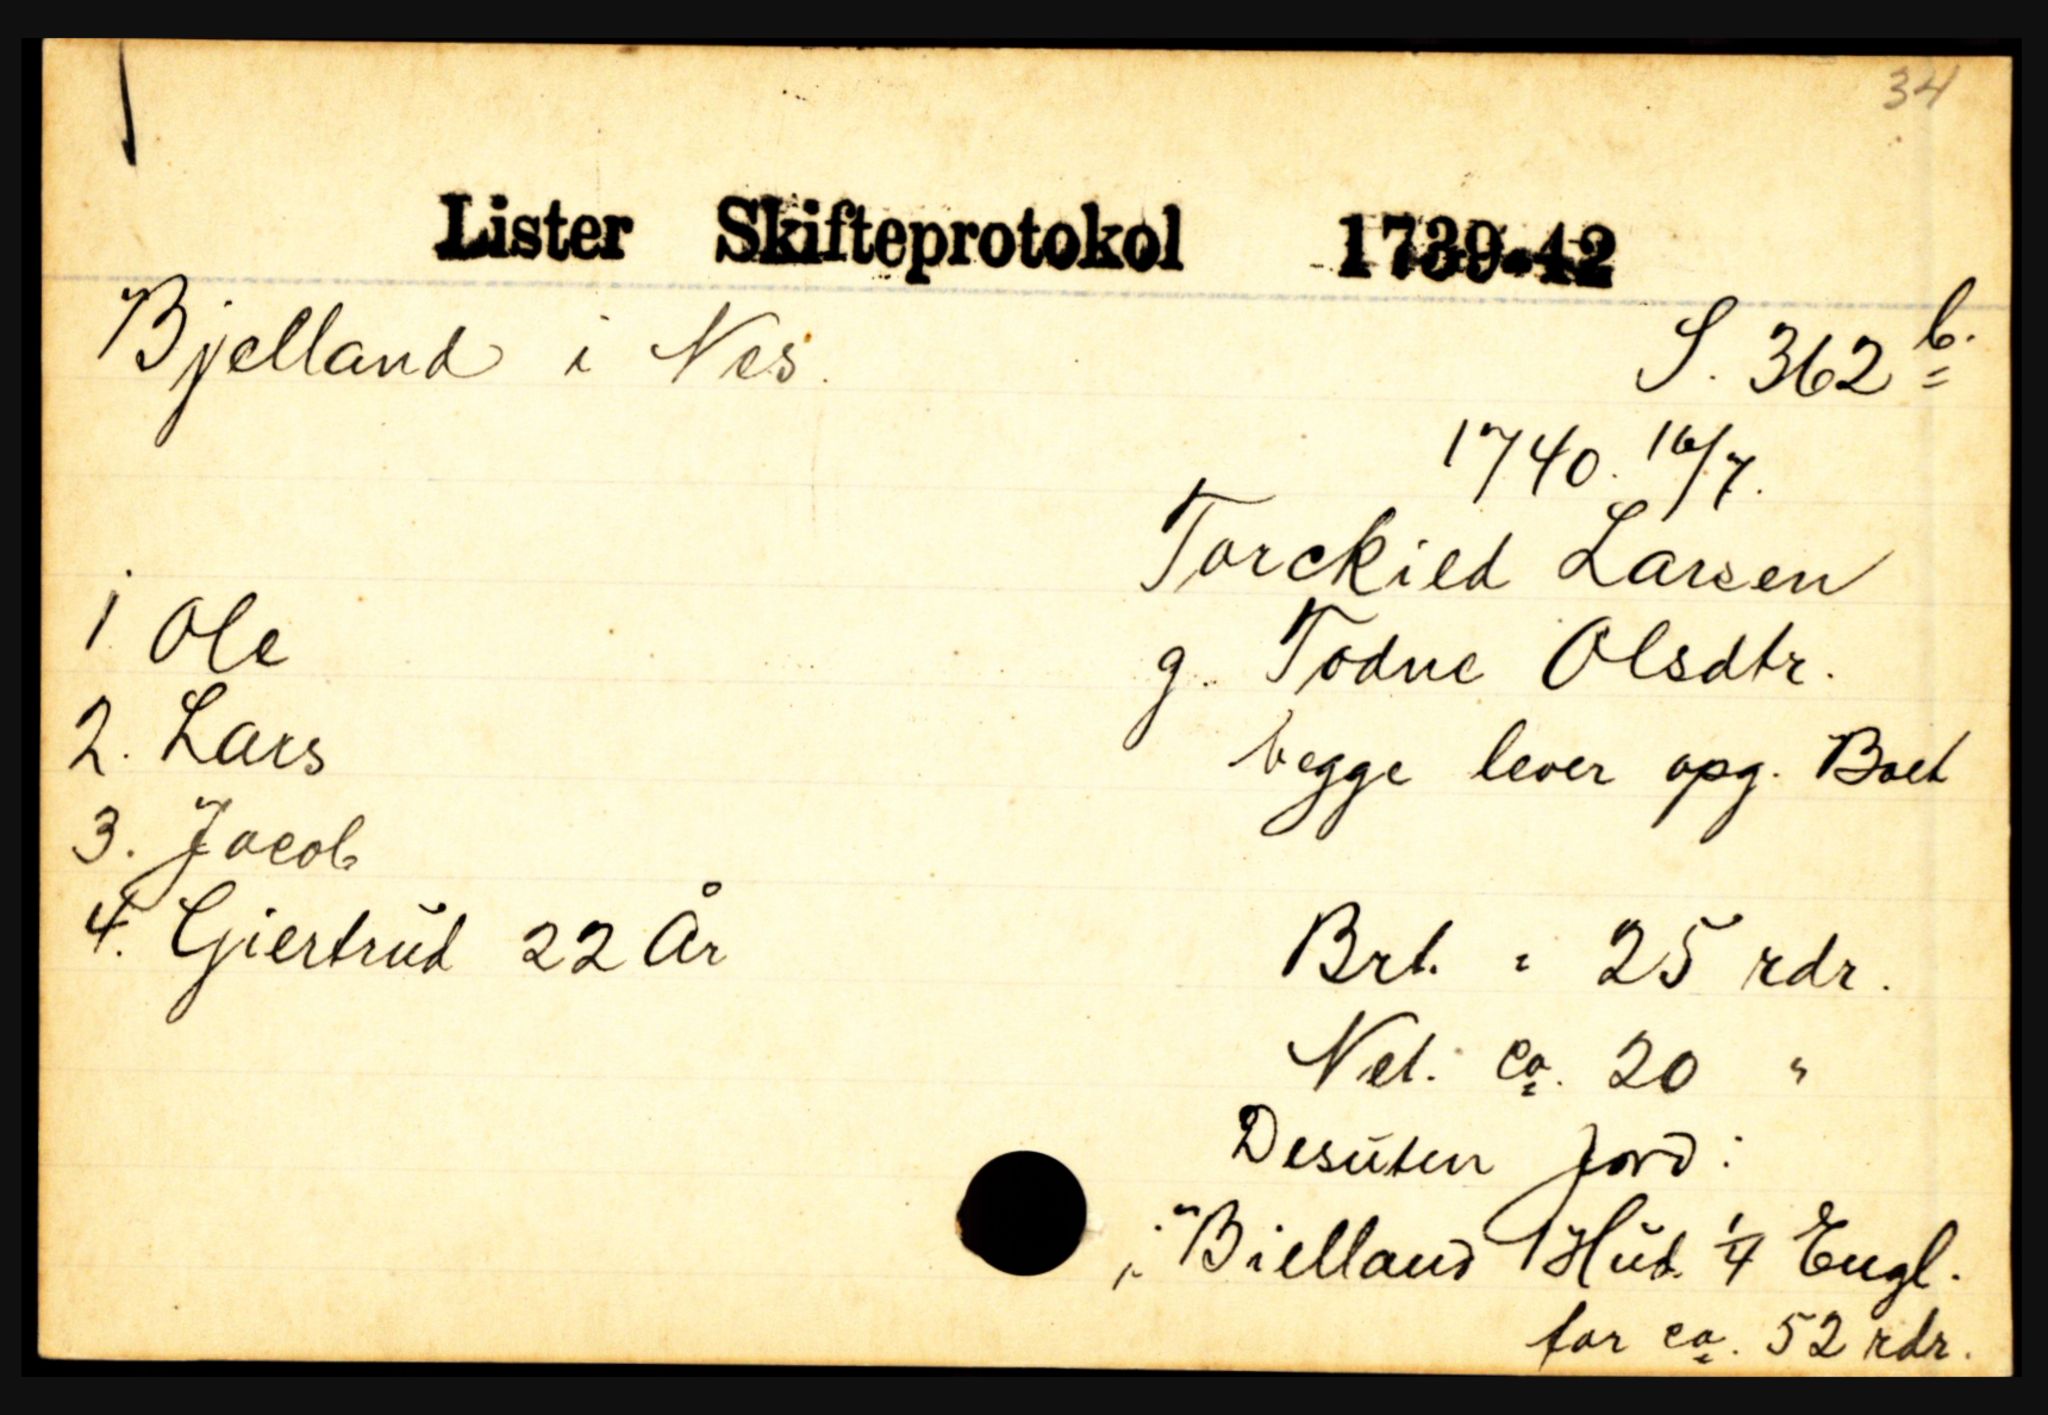 34
Lister Skifteprotokol 1739-42
Bjelland i Nes.
S. 362 b.
1740. 16/7.
Torckild Larsen
g. Todne Olsdtr.
begge lever opg. Boet
1 Ole
2. Lars
3. Jacob
4. Giertrud 22 År
Brt. = 25 rdr.
Net. ca. 20 "
Desuten Jord:
i Bielland 1 Hud 1/4 Engl.
for ca. 52 rdr.